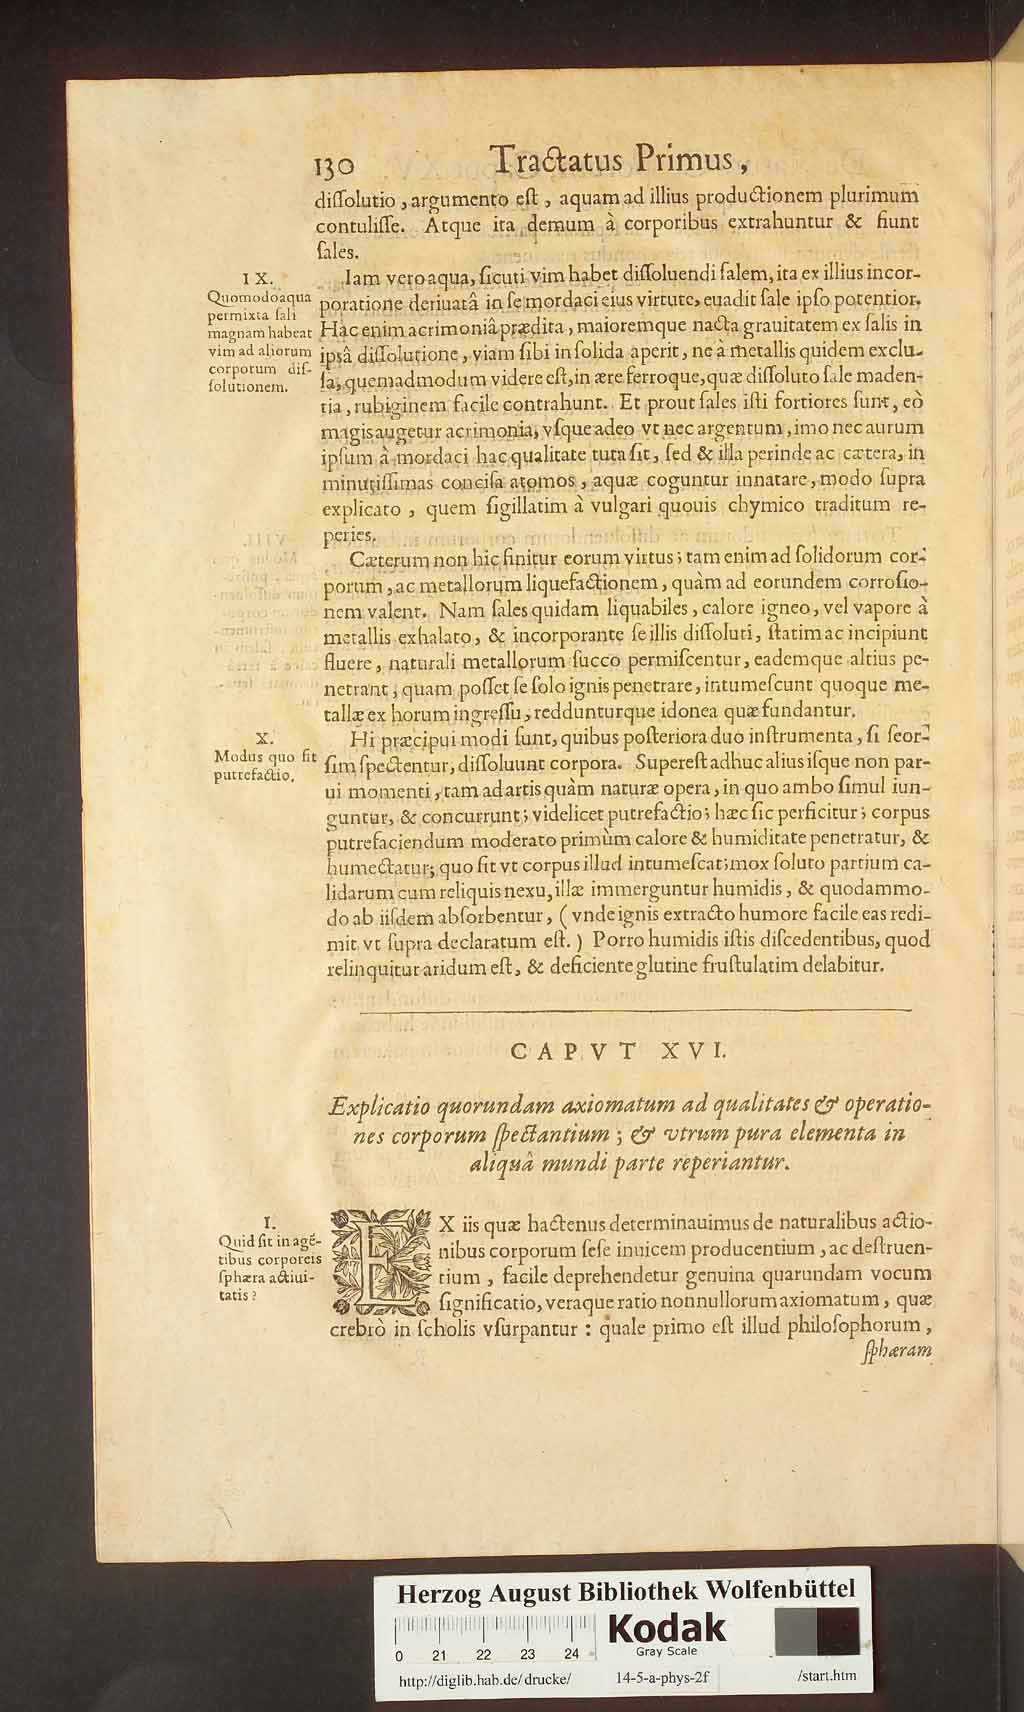 130 Tractatus Primus,
dissolutio, argumento est, aquam ad illius productionem plurimum
contulisse. Atque ita demum à corporibus extrahuntur & fiunt
sales.
IX.
Quomodo aqua
permixta sali
magnam habeat
vim ad aliorum
corporum dis-
solutionem.
Iam vero aqua, sicuti vim habet dissoluendi salem, ita ex illius incor-
poratione deriuatâ in se mordaci eius virtute, euadit sale ipso potentior.
Hâc enim acrimoniâ prædita, maioremque nacta grauitatem ex salis in
ipsâ dissolutione, viam sibi in solida aperit, ne à metallis quidem exclu-
sa, quemadmodum videre est, in ære ferroque, quæ dissoluto sale maden-
tia, rubiginem facile contrahunt. Et prout sales isti fortiores sunt, eò
magis augetur acrimonia, vsque adeo vt nec argentum, imo nec aurum
ipsum à mordaci hac qualitate tuta sit, sed & illa perinde ac cætera, in
minutissimas concisa atomos, aquæ coguntur innatare, modo supra
explicato, quem sigillatim à vulgari quouis chymico traditum re-
peries.
Cæterum non hic finitur eorum virtus; tam enim ad solidorum cor-
porum, ac metallorum liquefactionem, quàm ad eorundem corrosio-
nem valent. Nam sales quidam liquabiles, calore igneo, vel vapore à
metallis exhalato, & incorporante se illis dissoluti, statim ac incipiunt
fluere, naturali metallorum succo permiscentur, eademque altius pe-
netrant, quam posset se solo ignis penetrare, intumescunt quoque me-
tallæ ex horum ingressu, reddunturque idonea quæ fundantur.
X.
Modus quo fit
putrefactio.
Hi præcipui modi sunt, quibus posteriora duo instrumenta, si seor-
sim spectentur, dissoluunt corpora. Superest adhuc alius isque non par-
ui momenti, tam ad artis quàm naturæ opera, in quo ambo simul iun-
guntur, & concurrunt; videlicet putrefactio; hæc sic perficitur; corpus
putrefaciendum moderato primùm calore & humiditate penetratur, &
humectatur; quo fit vt corpus illud intumescat; mox soluto partium ca-
lidarum cum reliquis nexu, illæ immerguntur humidis, & quodammo-
do ab iisdem absorbentur, (vnde ignis extracto humore facile eas redi-
mit vt supra declaratum est.) Porro humidis istis discedentibus, quod
relinquitur aridum est, & deficiente glutine frustulatim delabitur.
CAPVT XVI.
Explicatio quorundam axiomatum ad qualitates & operatio-
nes corporum spectantium; & vtrum pura elementa in
aliquâ mundi parte reperiantur.
I.
Quid sit in agẽ-
tibus corporeis
sphæra actiui-
tatis?
EX iis quæ hactenus determinauimus de naturalibus actio-
nibus corporum sese inuicem producentium, ac destruen-
tium, facile deprehendetur genuina quarundam vocum
significatio, veraque ratio nonnullorum axiomatum, quæ
crebrò in scholis vsurpantur: quale primo est illud philosophorum,
sphæram
Herzog August Bibliothek Wolfenbüttel
Kodak
Gray Scale
0 21 22 23 24
http://diglib.hab.de/drucke/ 14-5-a-phys-2f /start.htm